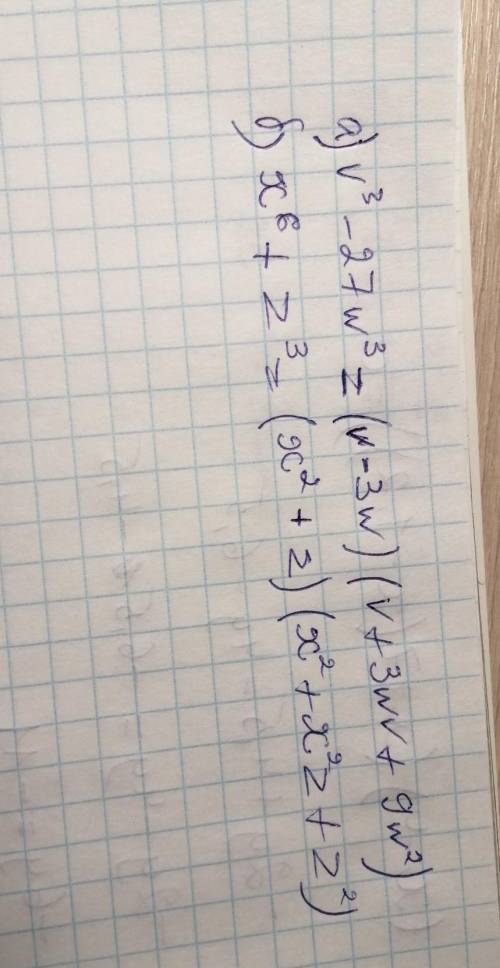 а) v³ - 27w³ = (v - 3w) (v + 3wv + 9w²)
б) x⁶ + z³ = (x² + z) (x² + x²z + z²)